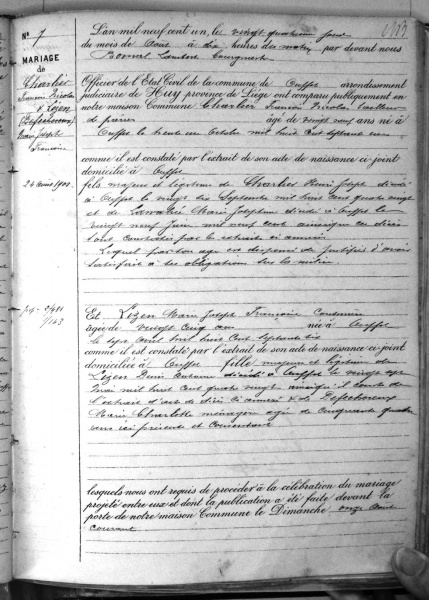 N° 7
MARIAGE
de
Charlier
François Nicolas
& Lizen
Marie Joseph
Françoise
24 Août 1901.
L'an mil neuf cent un, le vingt quatrième jour
du mois de Août à dix heures du matin par devant nous
Lambert Bourgmestre
Officier de l'Etat Civil de la commune de Ouffet arrondissement
judiciaire de Huy province de Liège ont comparu publiquement en
notre maison Commune Charlier François Nicolas tailleur
de pierres âgé de vingt neuf ans né à
Ouffet le trente un Octobre mil huit cent septante un
comme il est constaté par l'extrait de son acte de naissance ci-joint
domicilié à Ouffet
fils majeur et légitime de Charlier Henri Joseph décédé
à Ouffet le vingt six Septembre mil huit cent quatre vingt
et de Marie Josephine décédée à Ouffet le
vingt neuf Juin mil neuf cent ainsi que ces décès
sont constatés par les extraits ci annexés
Lequel par son âge est dispensé de justifier d'avoir
satisfait à ses obligations sur la milice
Et Lizen Marie Joseph Françoise Couturière
agée de vingt cinq ans née à Ouffet
le sept Août mil huit cent septante six
comme il est constaté par l'extrait de son acte de naissance ci-joint
domiciliée à Ouffet fille majeure et légitime de
Lizen Denis Antoine décédé à Ouffet le vingt sept
Mai mil huit cent quatre vingt ainsi qu'il conste de
l'extrait d'acte de décès ci annexé & de
Marie Charlotte ménagère agée de cinquante quatre
ans ici présente et consentant
lesquels nous ont requis de procéder à la célébration du mariage
projeté entre eux et dont la publication a été faite devant la
porte de notre maison Commune le Dimanche onze Août
courant